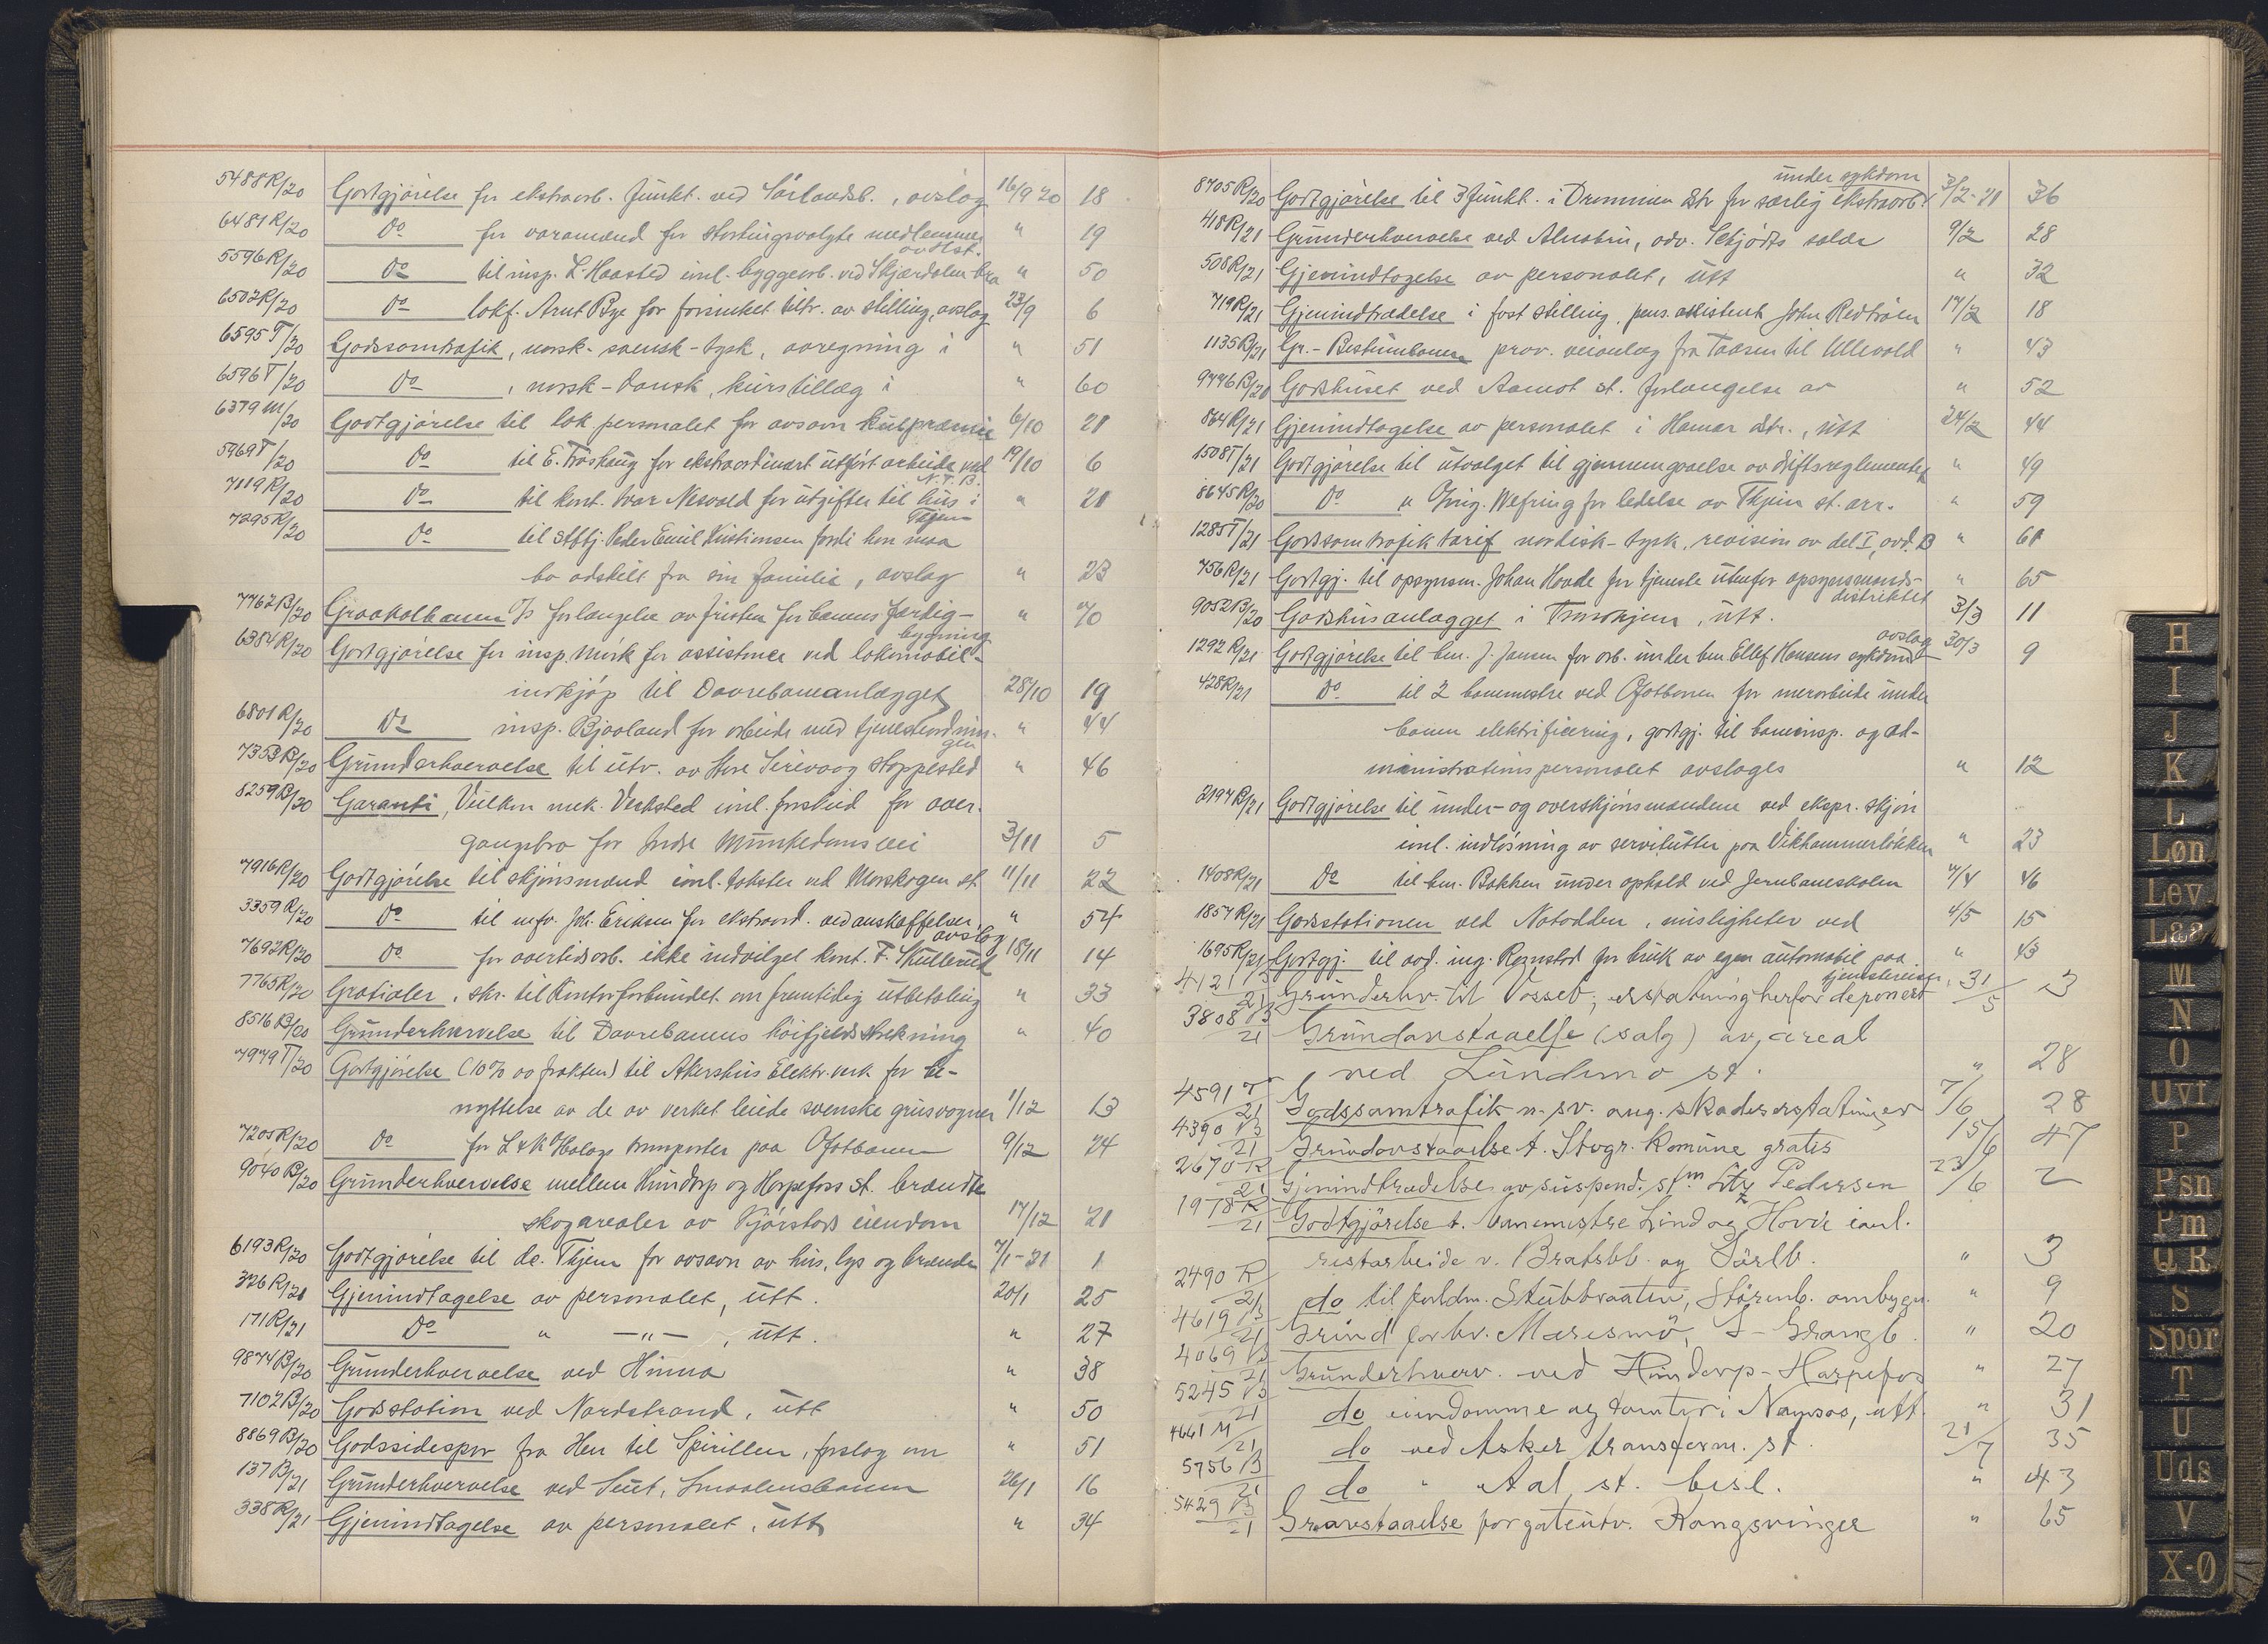 5488 R/20 Godtgjörelse for ekstraord. funkt. ved Sörlandsb., avslag 16/9 20 18
6481 R/20 Do for varamænd for stortingsvalgte medlemmer av Hst. " 19
5596 R/20 Do til insp. L. Haasted innl. byggearb. ved Skjærdalen bra " 50
6502 R/20 Do lokf. Arnt Bye for forsinket tiltr. av stilling, avslag 23/9 6
6595 T/20 Godssamtrafik, norsk-svensk-tysk, avregning i " 51
6596 T/20 Do, norsk-dansk, kurstillæg i " 60
6379 M/20 Godtgjörelse til lok. personalet for avsavn kulpræmie 6/10 21
5969 T/20 Do til E. Tröshaug for ekstraordinært utfört arbeide ved N.T.B. 19/10 6
7119 R/20 Do til kont. Ivar Nesvold for utgifter til hus i Thjem " 21
7295 R/20 Do til stbtj. Peder Emil Kristiansen fordi han maa
bo adskilt fra sin familie, avslag " 23
7762 B/20 Graakalbanen A/s forlængelse av fristen for banens færdig-bygning " 70
6384 R/20 Godtgjörelse for insp. Mörk for assistance ved lokomobil-
indkjöp til Dovrebaneanlægget 28/10 19
6801 R/20 Do insp. Bjaaland for arbeide med tjenesteordnin-gen " 44
7353 B/20 Grunderhvervelse til utv. av Store Sirevaag stoppested " 46
8259 B/20 Garanti, Vulkan mek. Verksted innl. forskud for over-
gangsbro for Indre Munkedamsvei 3/11 5
7916 R/20 Godtgjörelse til skjönsmænd innl. takster ved Morskogen st. 11/11 22
3359 R/20 Do til mfv. Joh. Eriksen for ekstraord. vedanskaffelser, avslag " 54
7692 R/20 Do for overtidsarb. ikke indvilget kont. F. Skullerud 18/11 14
7765 R/20 Gratialer, skr. til Kontorforbundet om fremtidig utbetaling " 33
8516 B/20 Grunderhvervelse til Dovrebanens höifjeldsstrekning " 40
7979 T/20 Godtgjörelse (10% av frakten) til Akershus Elektr.verk for be-
nyttelse av de av verket leiede svenske grusvogner 1/12 13
7205 R/20 Do for L & K Holags transporter paa Ofotbanen 9/12 24
9040 B/20 Grunderhvervelse mellem Hundorp og Harpefoss st. brændte
skogarealer av Kjörstads eiendom 17/12 21
6193 R/20 Godtgjörelse til dc. Thjem for avsavn av hus, lys og brænde 7/1-21 1
326 R/21 Gjenindtagelse av personalet, utt. 20/1 25
171 R/21 Do " —"—, utt. " 27
9874 B/20 Grunderhvervelse ved Hinna " 38
7102 B/20 Godsstation ved Nordstrand, utt " 50
8869 B/20 Godssidespor fra Hen til Spirillen, forslag om " 51
137 B/21 Grunderhvervelse ved Seut, Smaalensbanen 26/1 16
338 R/21 Gjenindtagelse av personalet, utt " 34
8705 R/20 Godtgjörelse til 3 funkt. i Drammen Dstr for særlig ekstraarb. under sykdom 3/2-21 36
418 R/21 Grunderhvervelse ved Alnabru, adv. Schjödts salær 9/2 28
508 R/21 Gjenindtagelse av personalet, utt " 32
719 R/21 Gjenindtrædelse i fast stilling, pens. assistent John Redtröen 17/2 18
1135 B/21 Gr.-Bestumbanen prov. veianlæg fra Taasen til Ullevold " 43
9776 B/20 Godshuset ved Aamot st. forlængelse av " 52
864 R/21 Gjenindtagelse av personalet i Hamar Dstr., utt 24/2 44
1508 T/21 Godtgjörelse til utvalget til gjennemgaaelse av driftsreglementet " 49
8645 R/20 Do " Ing. Wefring for ledelse av Thjem st. arr. " 59
1285 T/21 Godssamtrafiktarif nordisk-tysk, revision av del I, avd. B " 61
756 R/21 Godtgj. til opsynsm. Johan Hovde for tjeneste utenfor opsynsmands-distriktet " 65
9052 B/20 Godshusanlægget i Trondhjem, utt. 3/3 11
1292 R/21 Godtgjörelse til bm. J. Jansen for arb. under bm Ellef Hansens sykdom avslag 30/3 9
428 R/21 Do til 2 banemestre ved Ofotbanen for merarbeide under
banens elektrificering, godtgj. til baneinsp. og ad-
ministrationspersonalet avslages " 12
2194 B/21 Godtgjörelse til under- og overskjönsmændene ved ekspr. skjön
innl. indlösning av servitutter paa Vikhammerlökken " 23
1408 R/21 Do til bm. Bakken under ophold ved Jernbaneskolen 4/4 46
1857 R/21 Godsstationen ved Notodden, misligheter ved 4/5 15
1695 R/21 Godtgj. til avd. ing. Rognstad for bruk av egen automobil paa tjenestereiser " 43
4121 B/21 Grunderhv. til Vosseb; erstatning herfor deponert 31/5 3
3808 B/21 Grundavstaaelse (salg) av areal
ved Lundemo st. " 28
4591 T/21 Godssamtrafik n.-sv. ang. skadeserstatninger 7/6 28
4390 B/21 Grundavstaaelse t. Stvgr. Komune gratis 15/6 47
2670 R/21 Gjenindtrædelse av suspend. stm Pedersen 23/6 2
1978 R/21 Godtgjörelse t. banemestre Lind og Hovde innl.
restarbeide v. Bratsbb. og Sörlb. " 3
2490 R/21 do til forldm. Stubbraaten, Störenb. ombygn. " 9
4619 B/21 Grund forhv. Maresmö, " 20
4069 B/21 Grunderhverv. ved Hundorp-Harpefos " 27
5245 B/21 do eiendomme og tomter i Namsos, utt. " 31
4661 M/21 do ved Asker transform. st. 21/7 35
5756 B/21 do " Aal st. besl. " 43
5429 B/21 Gr.avstaaelse for gateutv. Kongsvinger " 65
H
I
J
K
L
Løn
Lev.
Laa
M
N
O
Uvf
P
Psn
Pm
Q R
S
Spor
T
U
Uds
V
X-Ø